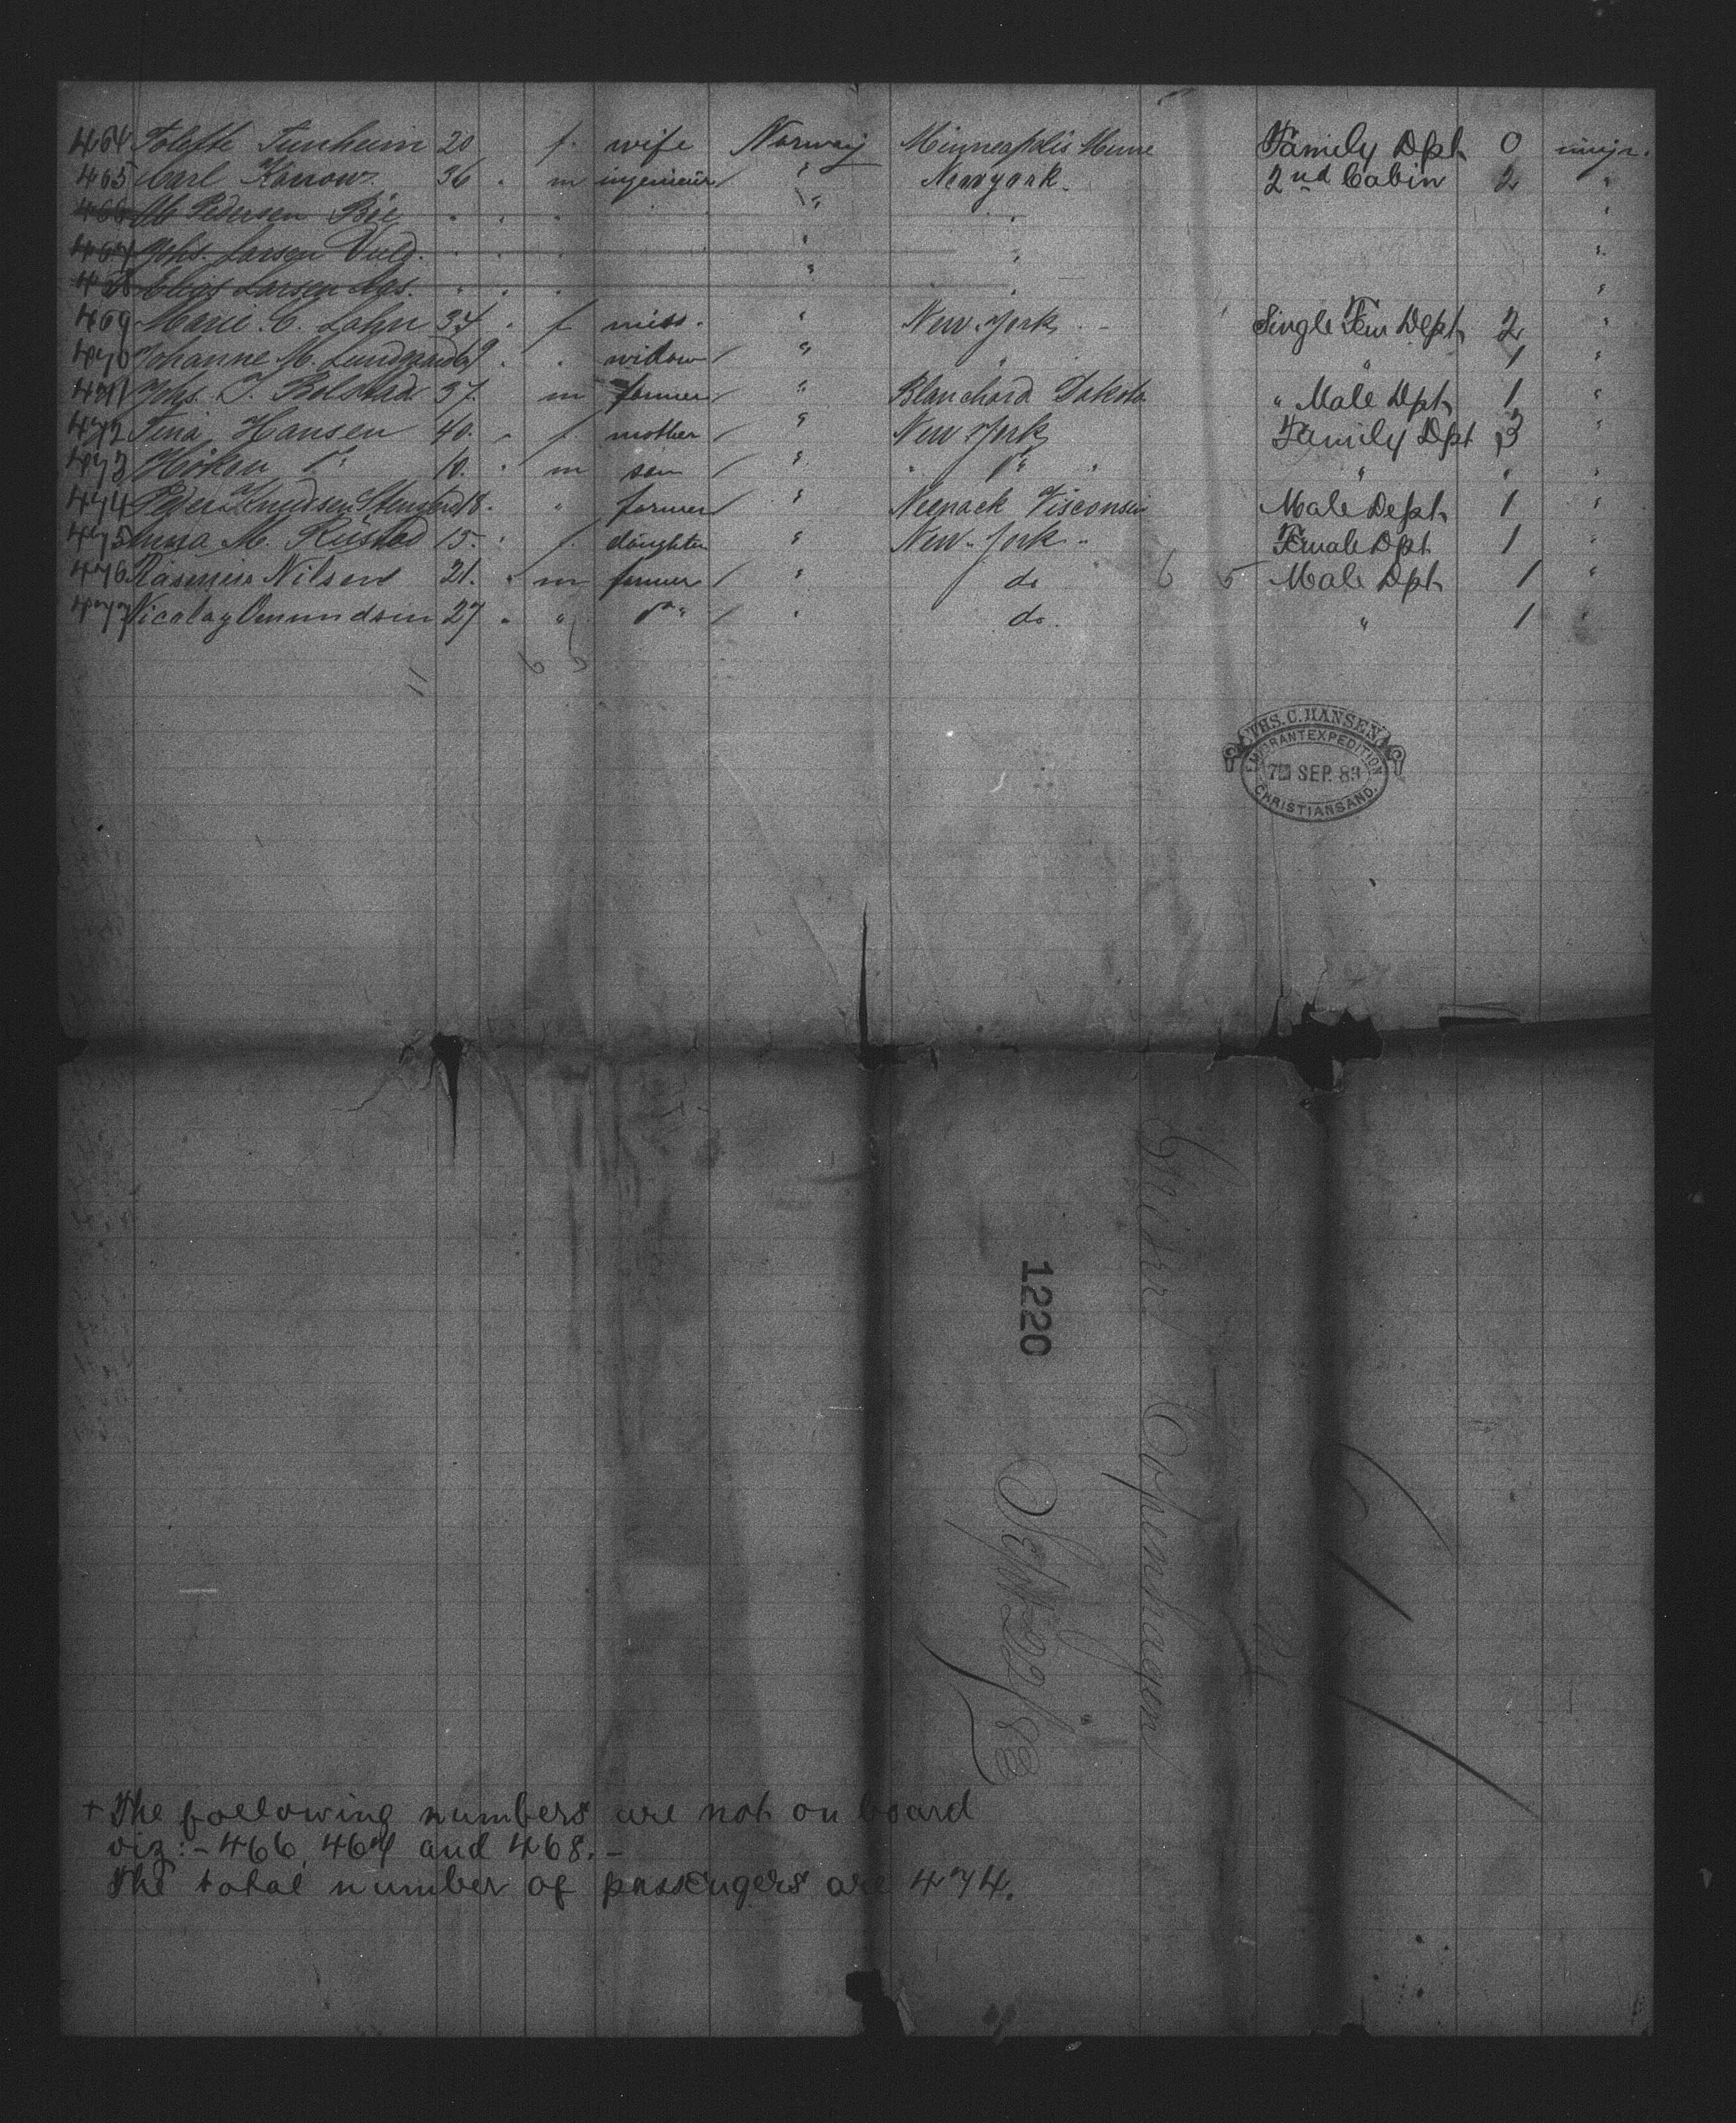 464 Tolette Tunheim 20 f. wife Norway Minneapolis Minne Family Dpt. 0 migr.
465 Carl Korrow. 36 " m ingenieur / " Newyork. 2nd Cabin 2 "
466 M Pedersen Böe " " " " " "
467 Johs. Larsen " " " " " "
468 Elias Larsen Aas. " " " " " "
469 Marie C. Lohn 34 " f miss. " New. York. Single Fem Dept, 2 "
470 Johanne M. " " widow / " " " 1 "
471 Johs. T. Bolstad 37 m farmer / " Blanchard Dakota " Male Dpt, 1 "
472 Tina Hansen 40. " f. mother / " New York, Family Dpt 3 "
473 Håkon do 10. " m son / " " do " " " "
474 Peder Knudsen 18. " farmer / " Neenack Visconsin Male Dept, 1 "
475 Anna M. Rüstad 15. " f. daughter " New. York. Female Dpt 1 "
476 Rasmus Nilsen 21. " m farmer / " do 6 5 Male Dpt, 1 "
477 Nicolay Omundsen 27 " " do " / " do. " 1 "
11 6 5
THS. C. HANSEN
EMIGRANTEXPEDITION
7 SEP. 83
CHRISTIANSAND.
1220
Geiser
Copenhagen
Sept 22/83
+ The following numbers are not on board
viz: - 466, 467 and 468. -
The total number of passengers are 474.